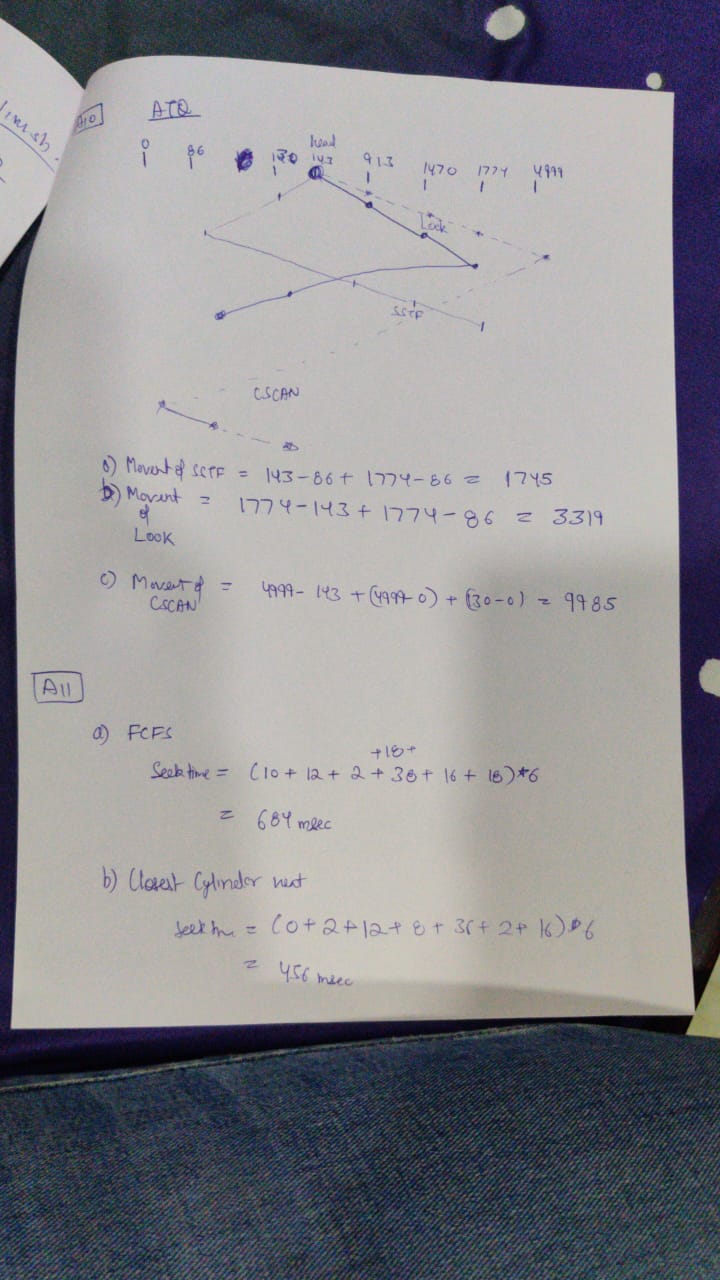 A10 ATQ
head
0 86 130 143 913 1470 1774 4999
Look
SSTF
CSCAN
a) Movent of SSTF = 143-86 + 1774-86 = 1745
b) Movent of Look = 1774-143 + 1774-86 = 3319
c) Movent of CSCAN = 4999-143 + (4999-0) + (130-0) = 9985
A11
a) FCFS
+18+
Seek time = (10 + 12 + 2 + 38 + 16 + 18)*6
= 684 msec
b) Closest Cylinder next
Seek time = (0 + 2 + 12 + 8 + 36 + 2 + 16)*6
= 456 msec